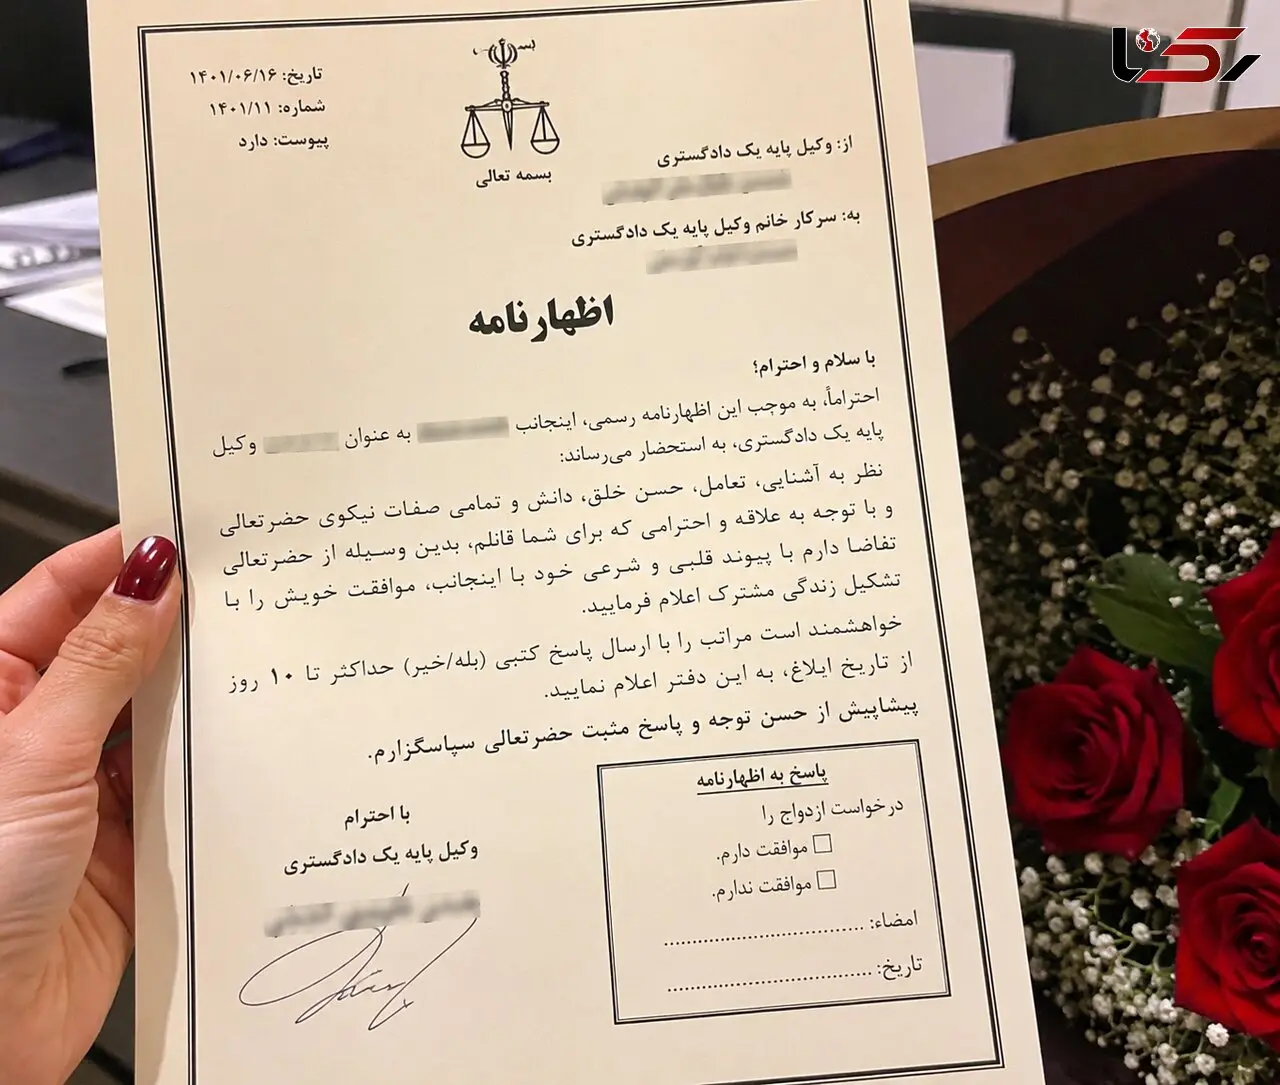 رکنا
تاریخ: ۱۴۰۱/۰۶/۱۶
شماره: ۱۴۰۱/۱۱
پیوست: دارد
بسمه تعالی
از: وکیل پایه یک دادگستری
به: سرکار خانم وکیل پایه یک دادگستری
اظهارنامه
با سلام و احترام؛
احتراماً، به موجب این اظهارنامه رسمی، اینجانب به عنوان وکیل
پایه یک دادگستری، به استحضار می‌رساند:
نظر به آشنایی، تعامل، حسن خلق، دانش و تمامی صفات نیکوی حضرتعالی
و با توجه به علاقه و احترامی که برای شما قائلم، بدین وسیله از حضرتعالی
تقاضا دارم با پیوند قلبی و شرعی خود با اینجانب، موافقت خویش را با
تشکیل زندگی مشترک اعلام فرمایید.
خواهشمند است مراتب را با ارسال پاسخ کتبی (بله/خیر) حداکثر تا ۱۰ روز
از تاریخ ابلاغ، به این دفتر اعلام نمایید.
پیشاپیش از حسن توجه و پاسخ مثبت حضرتعالی سپاسگزارم.
با احترام
وکیل پایه یک دادگستری
پاسخ به اظهارنامه
درخواست ازدواج را
☐ موافقت دارم.
☐ موافقت ندارم.
امضاء: ....................................
تاریخ: ....................................